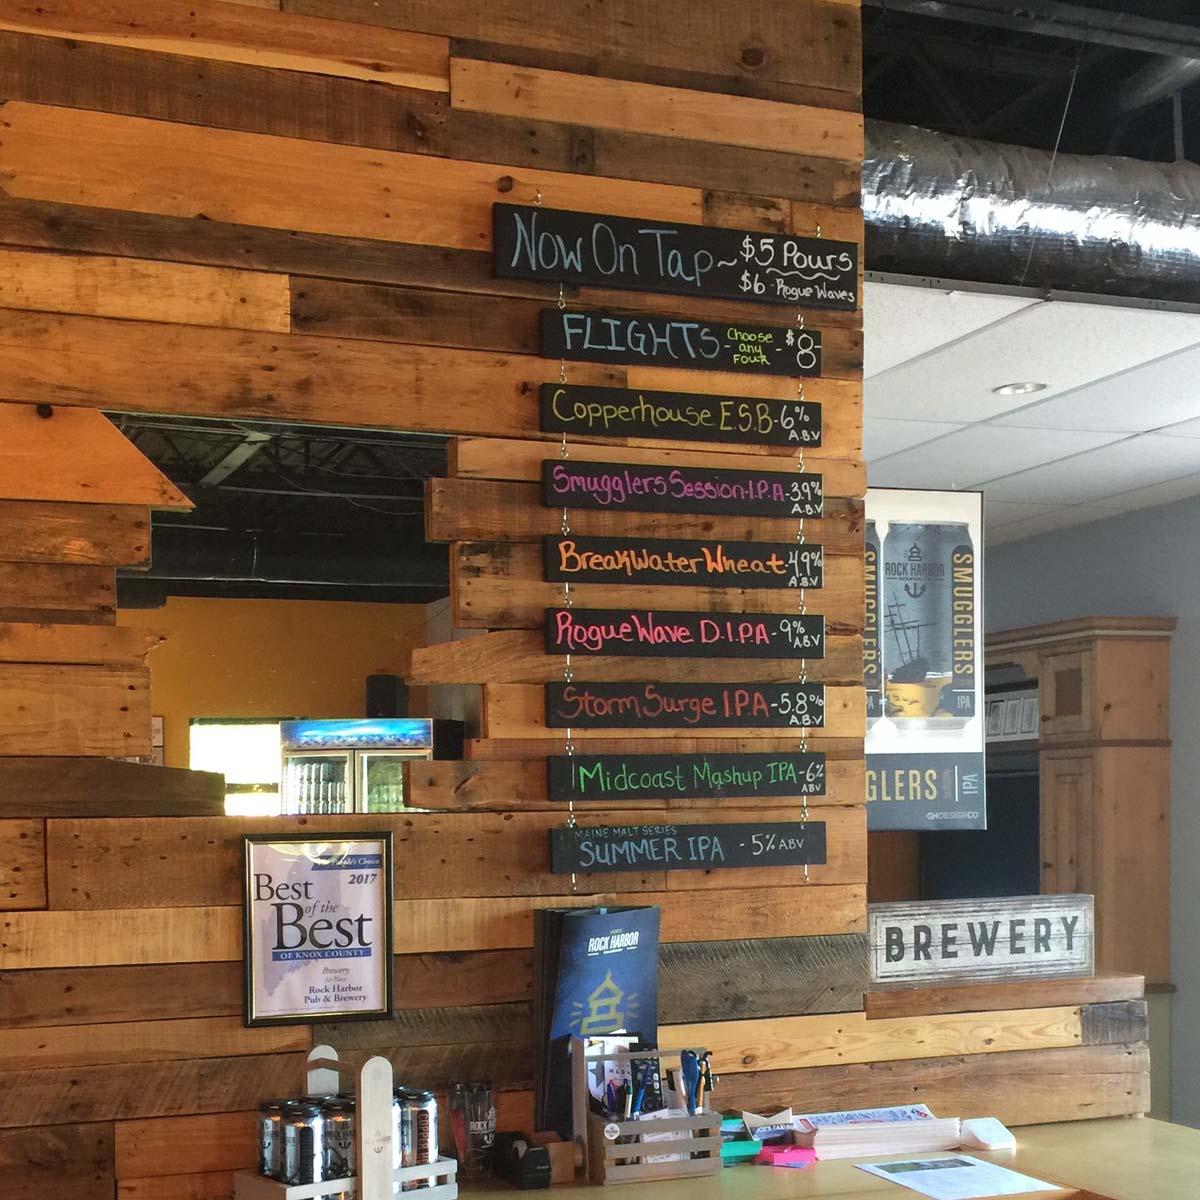 Now On Tap ~ $5 Pours
$6 - Rogue Waves
FLIGHTS - Choose any FOUR - $8-
Copperhouse E.S.B - 6% A.B.V
Smugglers Session I.P.A - 3.9% A.B.V
BreakWater Wheat - 4.9% A.B.V
Rogue Wave D.I.P.A - 9% A.B.V
Storm Surge I.P.A - 5.8% A.B.V
Midcoast Mashup IPA - 6% ABV
MAINE MALT SERIES
SUMMER IPA - 5% ABV
ROCK HARBOR
SMUGGLERS
IPA
SMUGGLERS
IPA
GLERS
IPA
GHDESIGNCO
The People's Choice
2017
Best
of the
Best
OF KNOX COUNTY
Brewery
1st Place
Rock Harbor
Pub & Brewery
ROCK HARBOR
BREWERY
ROCK